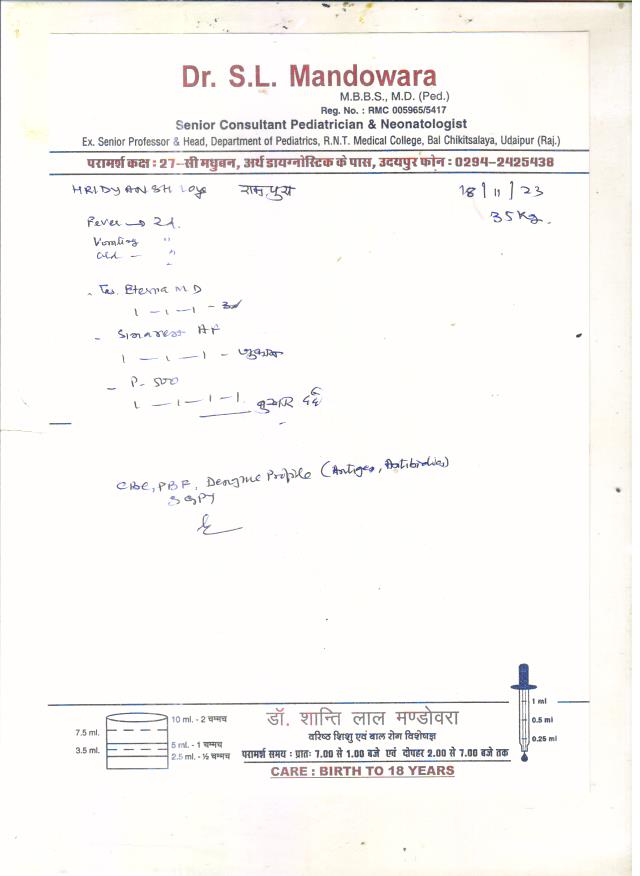 Dr. S.L. Mandowara
M.B.B.S., M.D. (Ped.)
Reg. No. : RMC 005965/5417
Senior Consultant Pediatrician & Neonatologist
Ex. Senior Professor & Head, Department of Pediatrics, R.N.T. Medical College, Bal Chikitsalaya, Udaipur (Raj.)
परामर्श कक्ष : 27-सी मधुबन, अर्थ डायग्नोस्टिक के पास, उदयपुर फोन : 0294-2425438
HRIDYANSH 10yr 18/11/23
35 Kg.
Fever → 2d.
Vomiting "
- "
Eterna MD
1 - 1 - 1 - 3d
- AF
1 - 1 - 1 - जुकाम
- P-500
1 - 1 - 1 - 1. बुखार दर्द
CBC, PBF, Dengue Profile (Antigen, Antibodies)
SGPT
1 ml
0.5 ml
0.25 ml
7.5 ml.
3.5 ml.
10 ml. - 2 चम्मच
5 ml - 1 चम्मच
2.5 ml. - ½ चम्मच
डॉ. शान्ति लाल मण्डोवरा
वरिष्ठ शिशु एवं बाल रोग विशेषज्ञ
परामर्श समय : प्रातः 7.00 से 1.00 बजे एवं दोपहर 2.00 से 7.00 बजे तक
CARE : BIRTH TO 18 YEARS